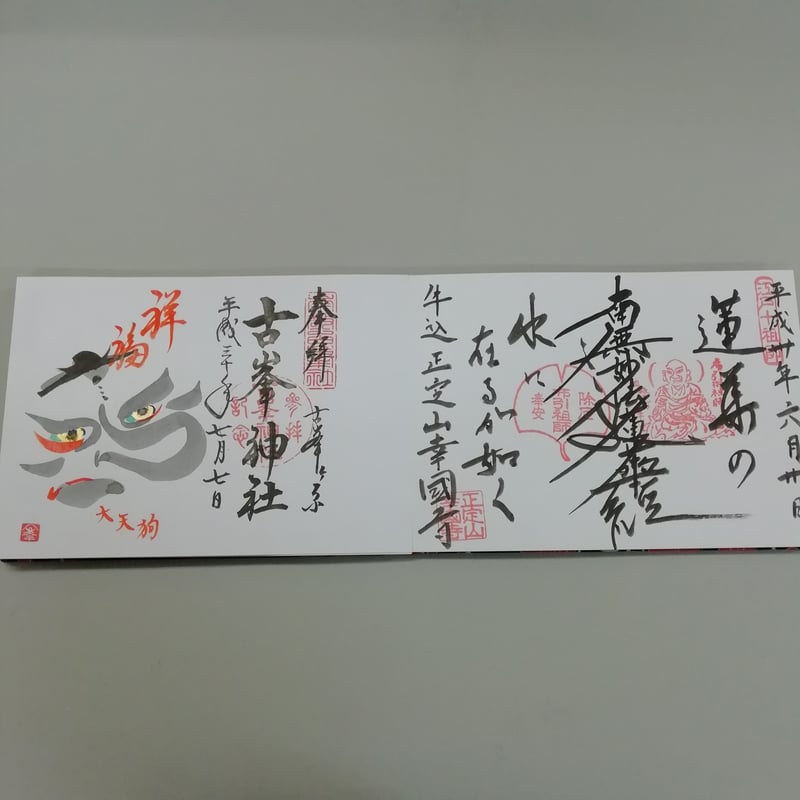 平成卅年六月卅日
蓮華の
南無妙法蓮華経
水に
在るが如く
牛込 正定山幸國寺
正定山
奉拝
古峯ヶ原
古峯神社
平成三十年七月七日
祥福
大天狗